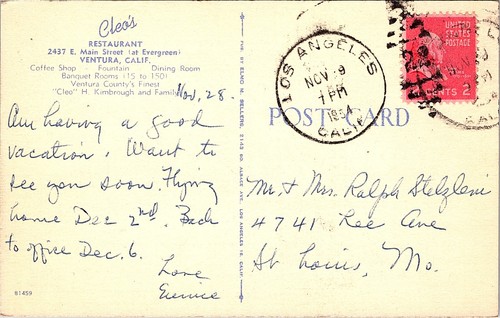 Cleo's
RESTAURANT
2437 E. Main Street (at Evergreen)
VENTURA, CALIF.
Coffee Shop - Fountain - Dining Room
Banquet Rooms (15 to 150)
Ventura County's Finest
"Cleo" H. Kimbrough and Family
Nov. 28.
Am having a good
vacation. Want to
see you soon. Flying
home Dec 2nd. Back
to office Dec. 6.
Love
Eunice
61459
POST CARD
LOS ANGELES
NOV 29
1 PM
1954
CALIF.
UNITED
STATES
POSTAGE
CENTS 2
Mr. & Mrs. Ralph Stelzleni
4741 Lee Ave
St Louis, Mo.